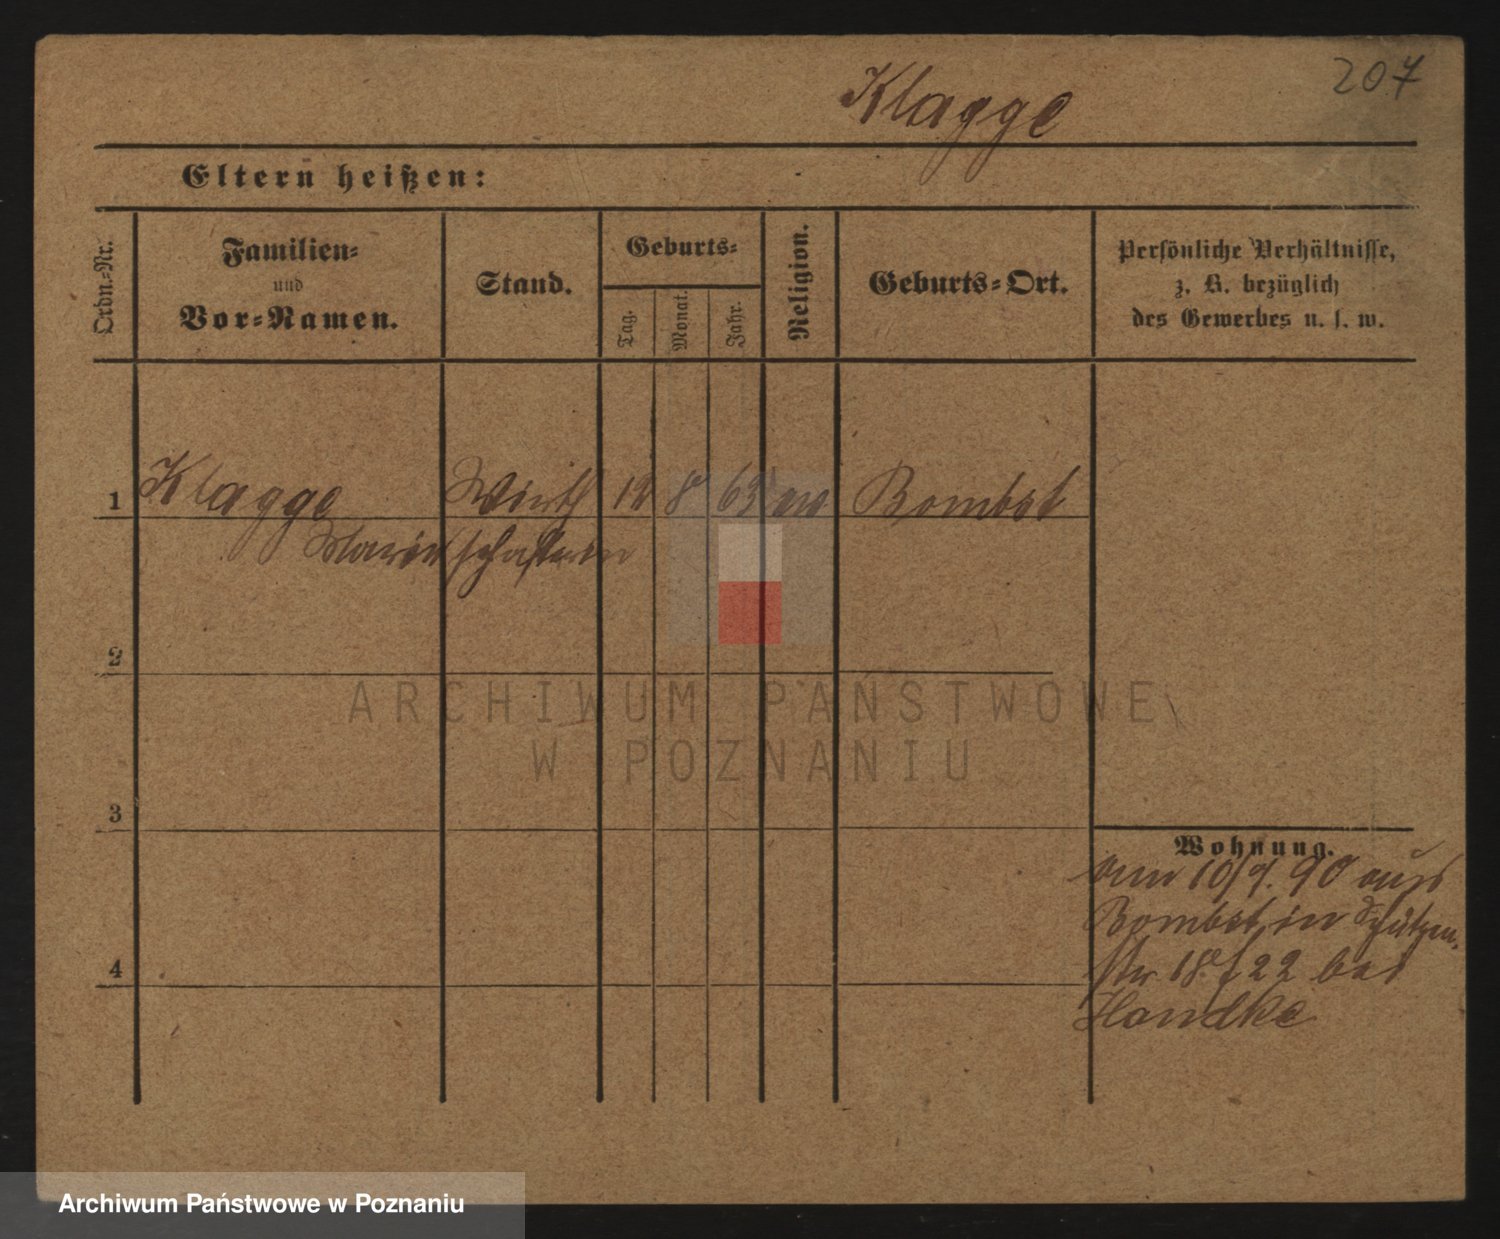 207
Klagge
Eltern heißen:
Ordn.-Nr.
Familien-
und
Vor-Namen.
Stand.
Geburts-
Tag.
Monat.
Jahr.
Religion.
Geburts-Ort.
Persönliche Verhältnisse,
z. B. bezüglich
des Gewerbes u. s. w.
1 Klagge Wirth 12 8 63 ev Bombst
Marie schafterin
2
3
4
Wohnung.
am 10/9. 90 aus
Bombst in Schützen
str 18/22 bei
Handke
ARCHIWUM PAŃSTWOWE
W POZNANIU
Archiwum Państwowe w Poznaniu